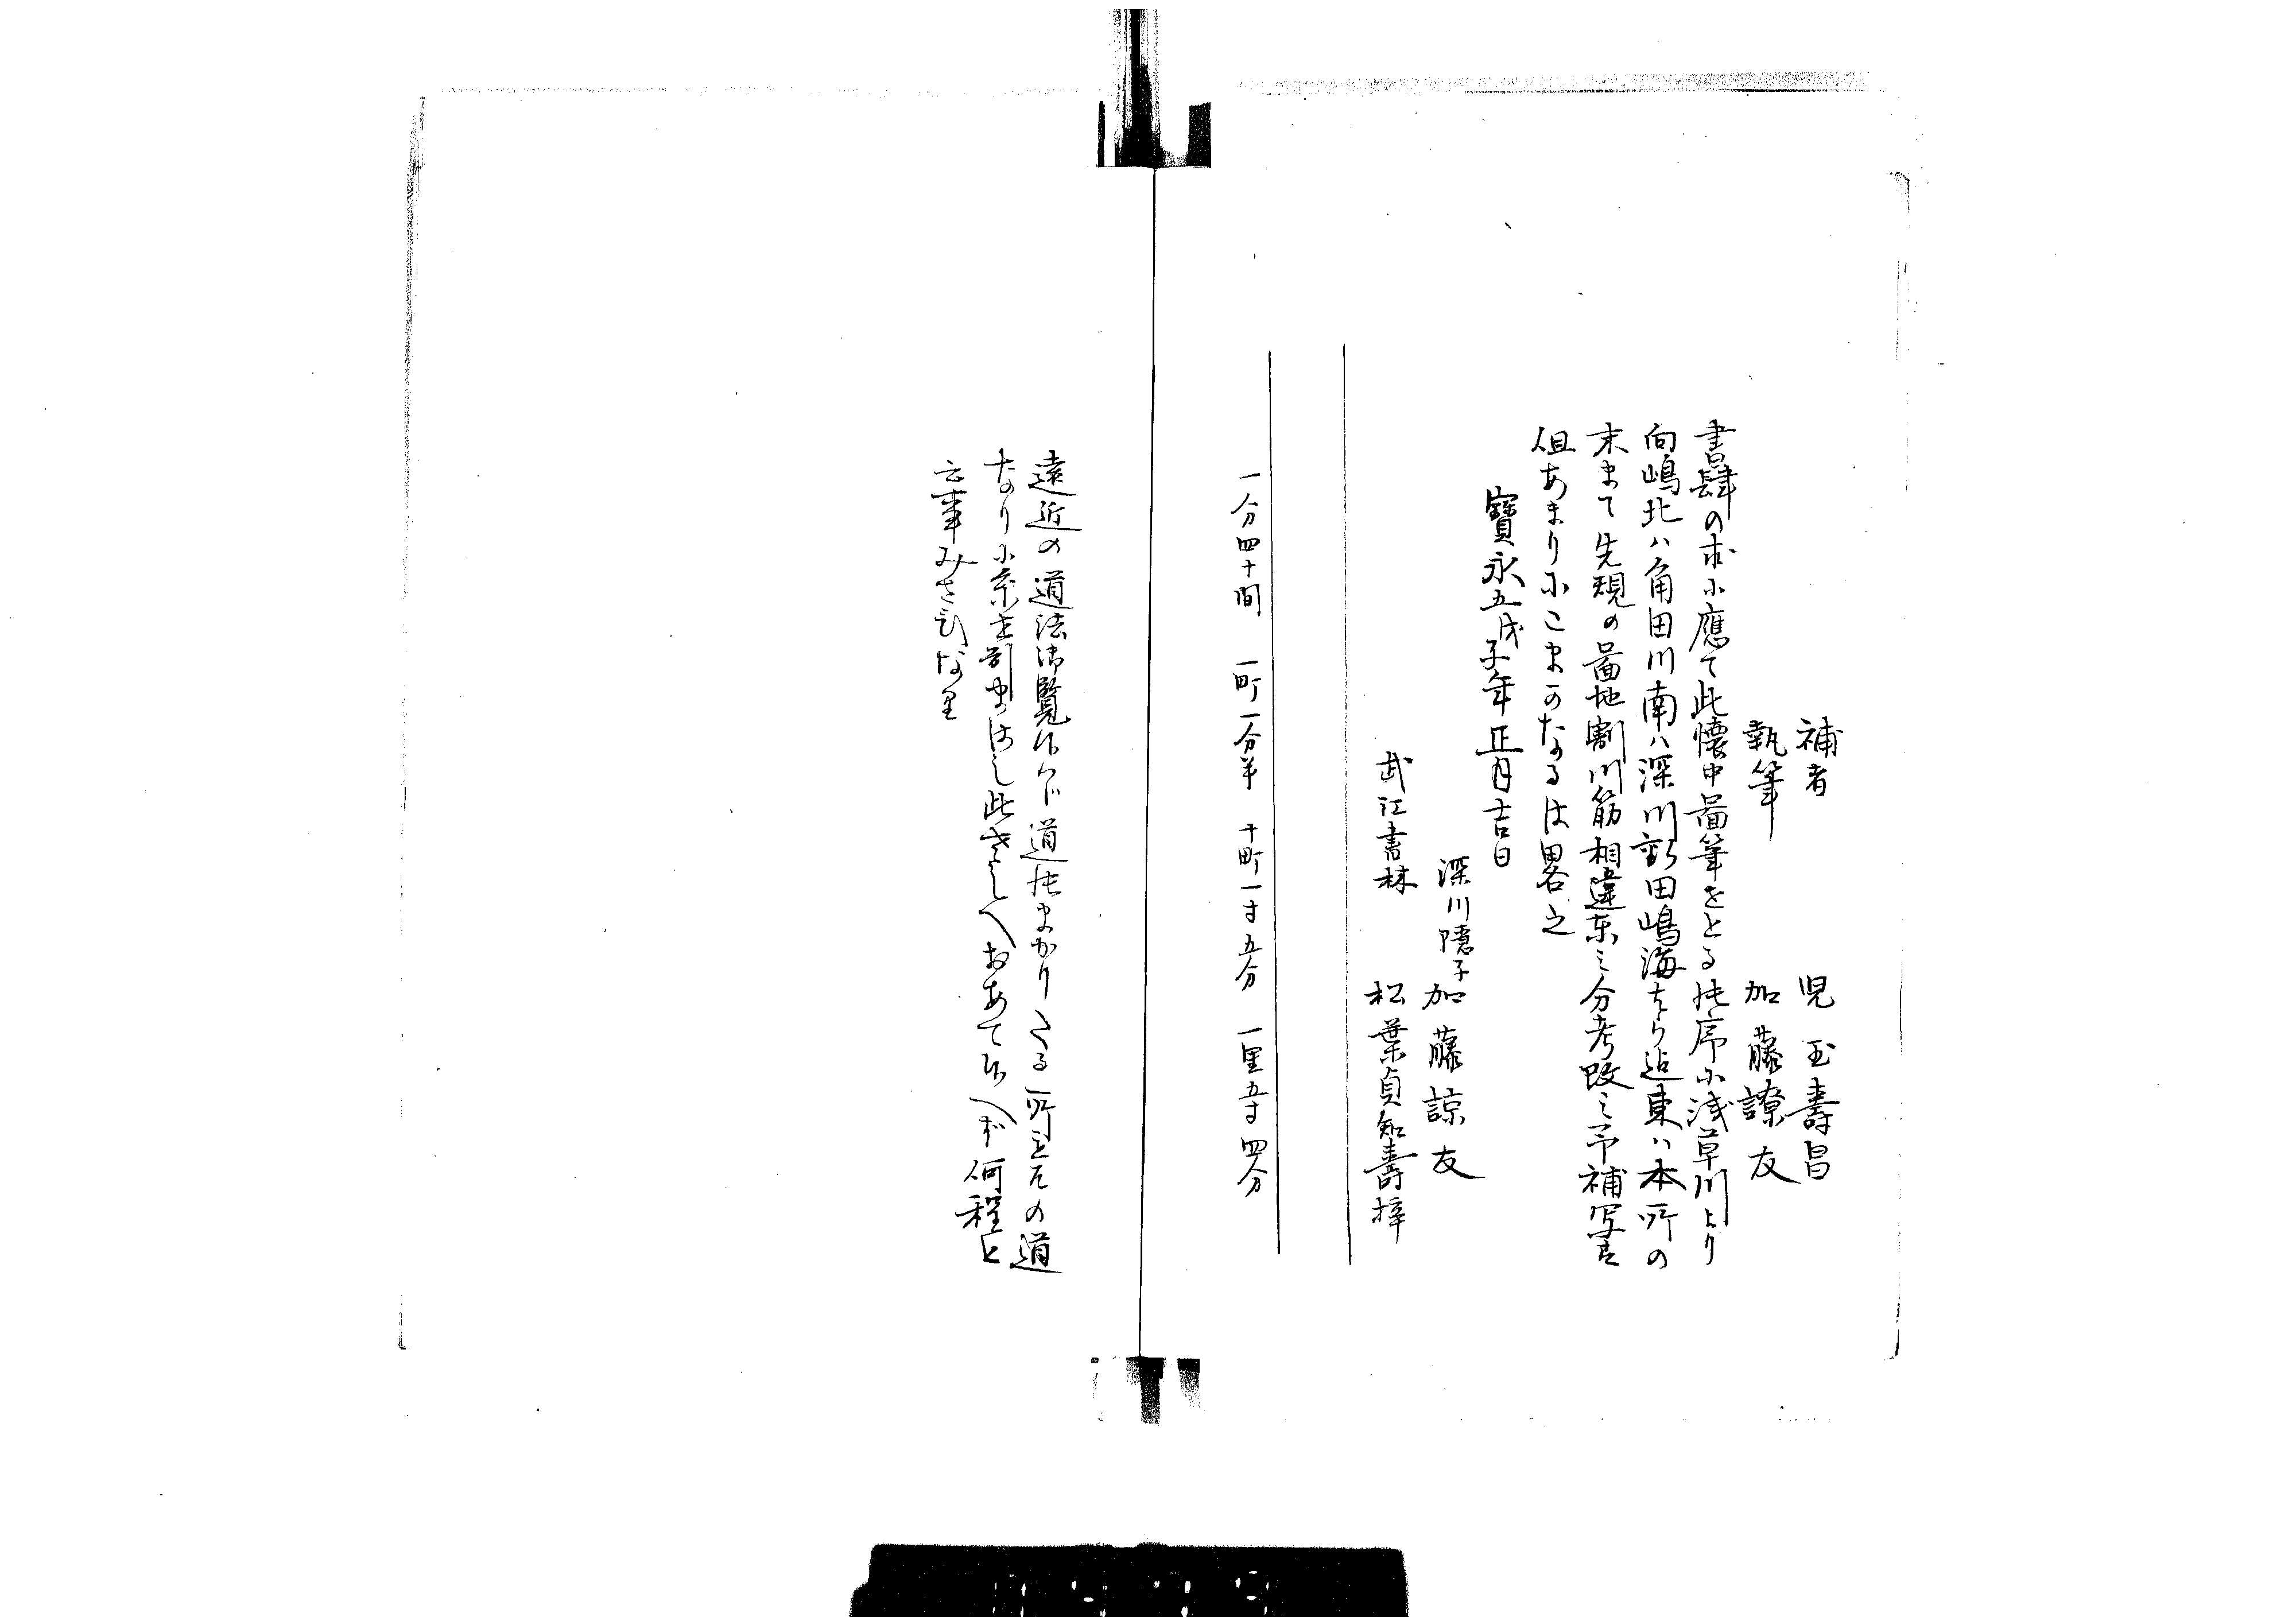 補者 児玉壽昌
執筆 加藤諒友
書肆の求に應て此懐中啚筆をとる状序に浅草川より
向嶋北ハ角田川南ハ深川新田嶋海をり迠東ハ本所の
末まて先規の啚地割川筋相違東之分考改之予補写
但あまりにこまかなるは畧之
寳永五戊子年正月吉日
深川隠子 加藤諒友
武江書林 松葉貞知壽梓
一分四十間 一町一分半 十町一寸五分 一里五寸四分
遠近の道法御覧候ハヾ道 まかりたる所をその道
なりに糸を引まはし此さしへおあて候へば何程と
云事みさ なり